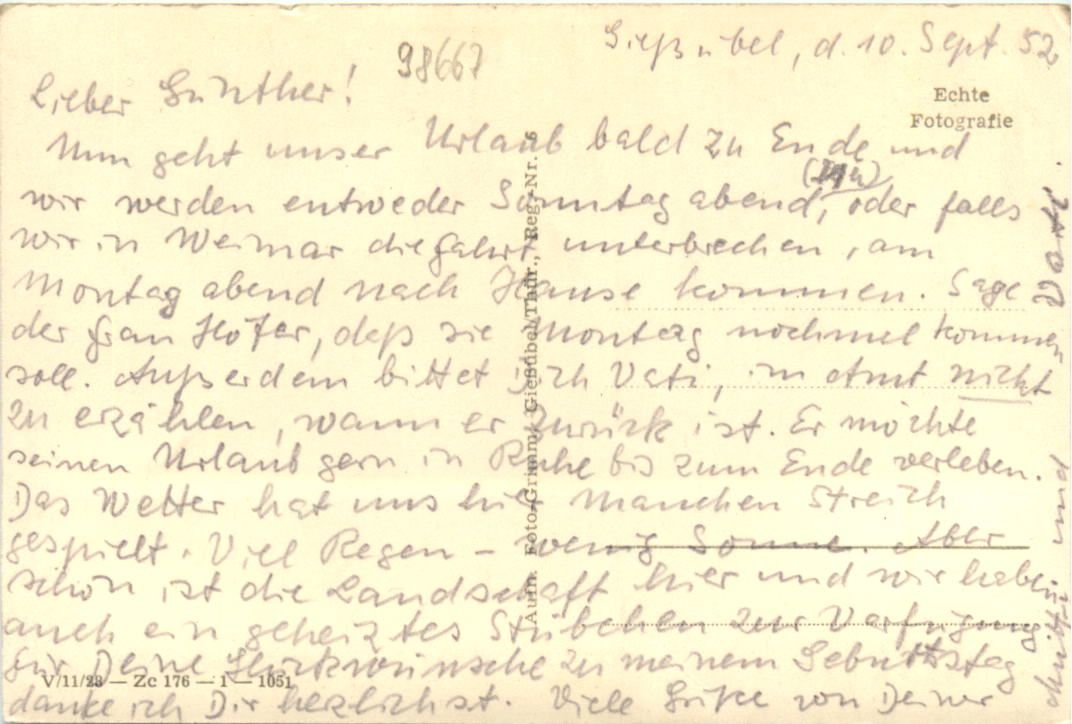 98667
Gießübel, d. 10. Sept. 52
Echte
Fotografie
Lieber Günther!
Nun geht unser Urlaub bald zu Ende und
wir werden entweder Sonntag abend, oder falls
wir in Weimar die Fahrt unterbrechen, am
Montag abend nach Hause kommen. Sage
der Frau Höfer, daß sie Montag nochmal kommen
soll. Außerdem bittet Dich Vati, im Amt nicht
zu erzählen, wann er zurück ist. Er möchte
seinen Urlaub gern in Ruhe bis zum Ende verleben.
Das Wetter hat uns hier manchen Streich
gespielt. Viel Regen – wenig Sonne. Aber
schön ist die Landschaft hier und wir haben
auch ein geheiztes Stübchen zur Verfügung
Für Deine Glückwünsche zu meinem Geburtstag
danke ich Dir herzlichst. Viele Grüße von Deiner
Mutti und
Vati.
Aufn. Foto-Grimm, Gießübel/Thür., Reg.-Nr. 6
V/11/28 — Zc 176 — 1 — 1051